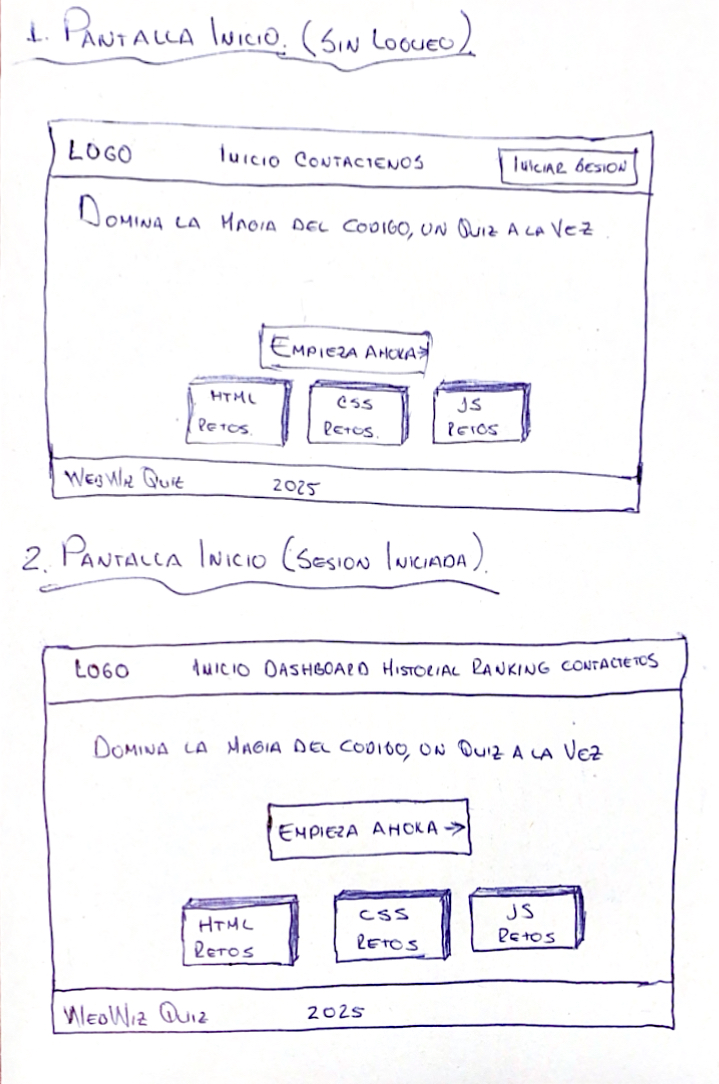 1. PANTALLA INICIO. (SIN LOGUEO)
LOGO INICIO CONTACTENOS INICIAR SESION
DOMINA LA MAGIA DEL CODIGO, UN QUIZ A LA VEZ.
EMPIEZA AHORA→
HTML CSS JS
RETOS. RETOS. RETOS
WEBWIZ QUIZ 2025
2. PANTALLA INICIO (SESION INICIADA).
LOGO INICIO DASHBOARD HISTORIAL RANKING
DOMINA LA MAGIA DEL CODIGO, UN QUIZ A LA VEZ
EMPIEZA AHORA →
HTML CSS JS
RETOS RETOS RETOS
WEBWIZ QUIZ 2025